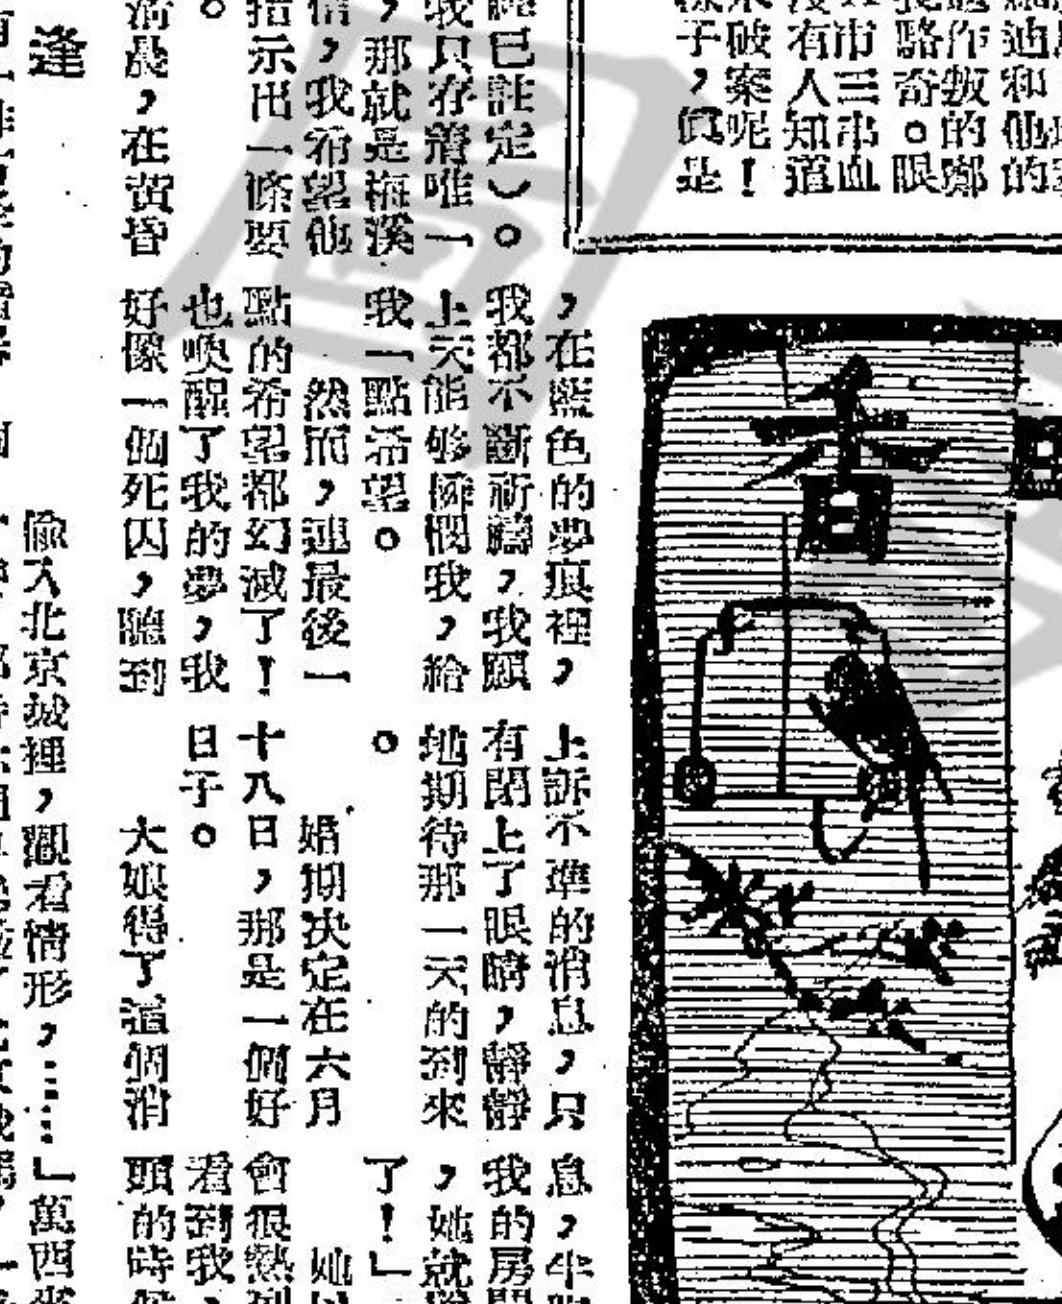 迪和他的
作叛的鄭
駱奇。眼
市三串血
有人知道
破案呢！
子，真是
香
已註定）。
我只存着唯一
，那就是梅溪
，我希望他
指示出一條要
。
晨，在黃昏
，在藍色的夢痕裡，
我都不斷祈禱，我願
上天能够憐憫我，給
我一點希望。
然而，連最後一
點的希望都幻滅了！
也喚醒了我的夢，我
好像一個死囚，聽到
上訴不準的消息，只
有閉上了眼睛，靜靜
地期待那一天的到來
。
婚期決定在六月
十八日，那是一個好
日子。
大娘得了這個消
息，
我的房
，她就
了！」
她
會很熱
看到我，
頭的時
逢
偸入北京城裡，觀看情形，……」萬西
圖